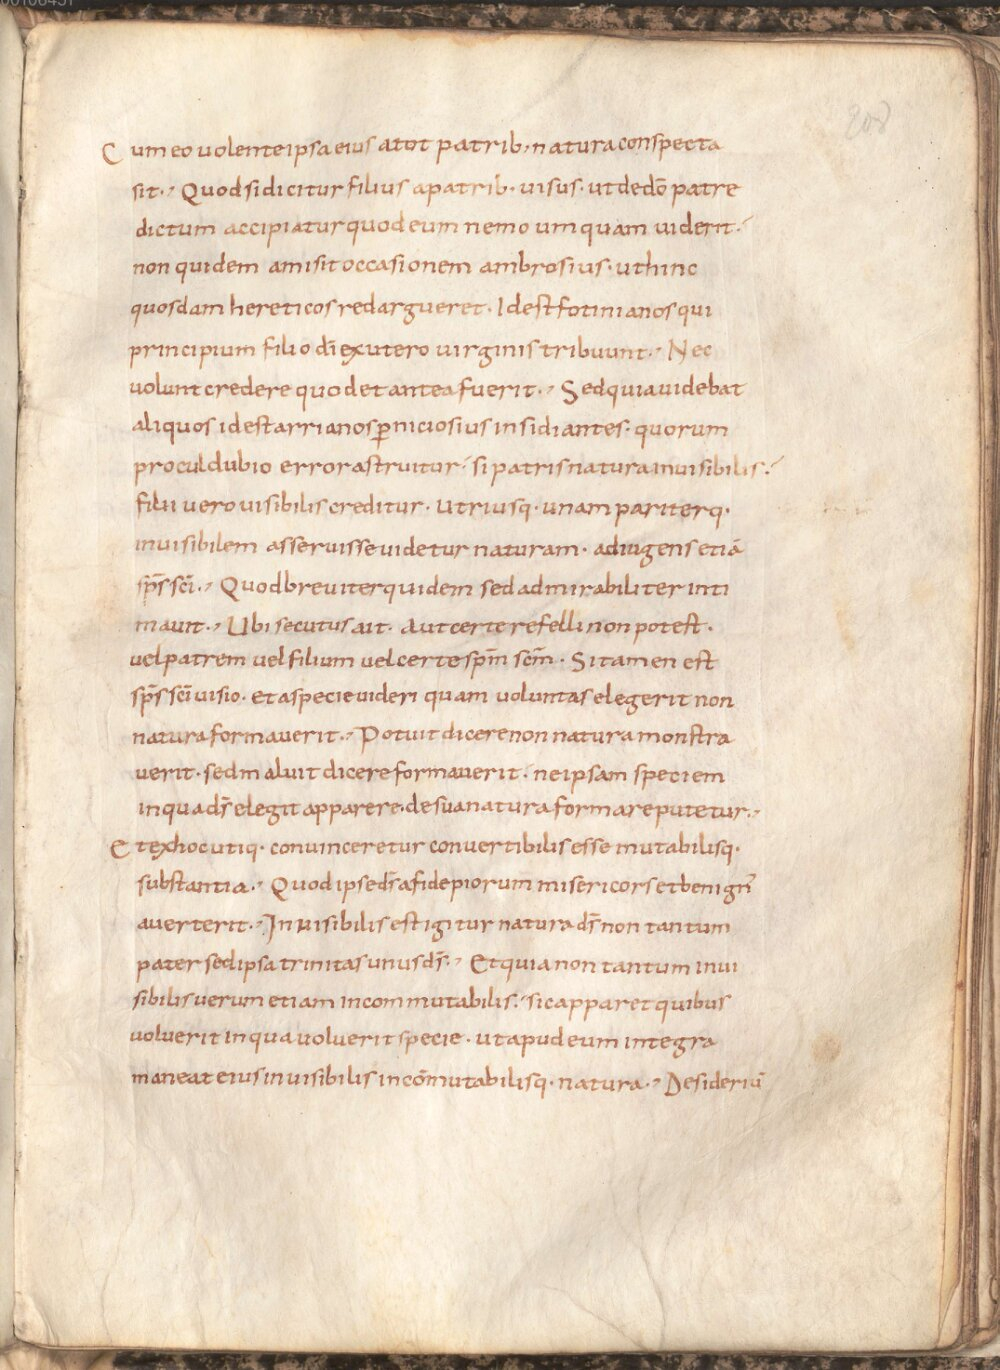 Cum eo uolente ipsa eius atot patrib; natura conspecta
sit. Quod si dicitur filius a patrib· uisus· ut de dō patre
dictum accipiatur quod eum nemo umquam uiderit·
non quidem amisit occasionem ambrosius· ut hinc
quosdam hereticos redargueret· Idest fotinianos qui
principium filio dī ex utero uirginis tribuunt. Nec
uolunt credere quod et antea fuerit. Sed quia uidebat
aliquos idest arrianos p̱niciosius insidiantes· quorum
procul dubio error astruitur· si patris natura inuisibilis·
filii uero uisibilis creditur· utriusq· unam pariterq·
inuisibilem asseruisse uidetur naturam· adiugens etiā
sp̄s sc̄i. Quod breuiter quidem sed admirabiliter inti
mauit. Ubi secutus ait· Aut certe refelli non potest·
uel patrem uel filium uel certe sp̄m sc̄m· Si tamen est
sp̄s sc̄i uisio· et a specie uideri quam uoluntas elegerit non
natura formauerit. Potuit dicere non natura monstra
uerit· sed maluit dicere formauerit· ne ipsam speciem
in qua ds̄ elegit apparere· de sua natura formare putetur.
Et ex hoc utiq· conuinceretur conuertibilis esse mutabilisq·
substantia. Quod ipse ds̄ a fide piorum misericors et benign̄
auerterit. Inuisibilis est igitur natura ds̄ non tantum
pater sed ipsa trinitas unus ds̄. Et quia non tantum inui
sibilis uerum etiam incommutabilis· sic apparet quibus
uoluerit in qua uoluerit specie· ut apud eum integra
maneat eius inuisibilis incōmutabilisq· natura. Desideriū